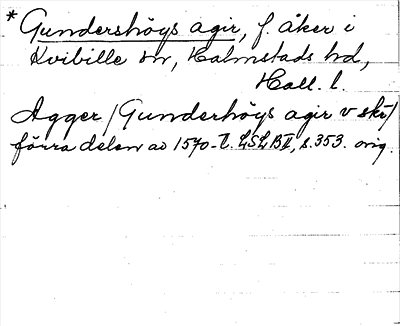 * Gundershöys agir, f. åker i
Kvibille sn, Halmstads hd,
Hall. l.
Agger / Gunderhöys agir v skr /
förra delen av 1570-t. LSLBII, s. 353. orig.